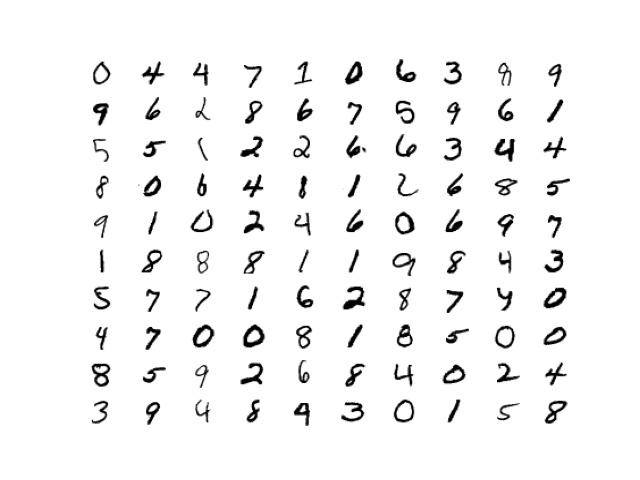 0 4 4 7 1 0 6 3 9 9
9 6 2 8 6 7 5 9 6 1
5 5 1 2 2 6 6 3 4 4
8 0 6 4 8 1 2 6 8 5
9 1 0 2 4 6 0 6 9 7
1 8 8 8 1 1 9 8 4 3
5 7 7 1 6 2 8 7 4 0
4 7 0 0 8 1 8 5 0 0
8 5 9 2 6 8 4 0 2 4
3 9 4 8 9 3 0 1 5 8